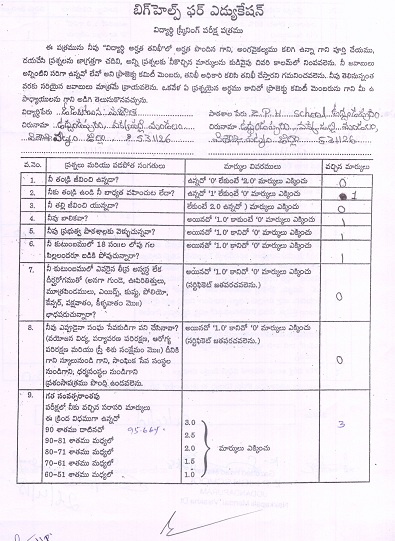 బిగ్‌హెల్ప్ ఫర్ ఎడ్యుకేషన్
విద్యార్థి స్క్రీనింగ్ పరీక్ష పత్రము
ఈ పత్రమును నీవు "విద్యార్థి అర్హత తనిఖీ"లో అర్హత పొందిన గాని, అంగవైకల్యము కలిగి ఉన్నా గాని పూర్తి చేయుము,
దయచేసి ప్రశ్నలను జాగ్రత్తగా చదివి, అన్ని ప్రశ్నలకు నీకొచ్చిన మార్కులను కుడివైపు చివరి కాలమ్‌లో నింపవలెను. నీ జవాబులు
అన్నింటిని సరిగా ఉన్నవో లేవో అని ప్రాజెక్టు కమిటీ మెంబరు, తనిఖీ అధికారి కలిసి తనిఖీ చేస్తారని గమనించవలెను. నీవు తెలిసినన్తవరకు
సరియైన జవాబులు మాత్రమే వ్రాయవలెను. ఒకవేళ ఏ ప్రశ్నయైన అర్థము కానిచో ప్రాజెక్టు కమిటీ మెంబరును గాని మీ ఉ
పాధ్యాయులను గాని అడిగి తెలుసుకొనవచ్చును.
విద్యార్థిపేరు పాఠశాల పేరు Z.P.H School
చిరునామా చిరునామా
531126 531126
వ.నెం. ప్రశ్నలు మరియు పదపోత సంగతులు మార్కుల వివరములు వచ్చిన మార్కులు
1. నీ తండ్రి జీవించి ఉన్నడా? ఉన్నచో '0' లేకుంటే '2.0' మార్కులు ఎక్కించు 0
2. నీకు తండ్రి ఉండి నీ బాధ్యత వహించుట లేదా? ఉన్నచో '1' లేకుంటే '0' మార్కులు ఎక్కించు 1
3. నీ తల్లి జీవించి యున్నదా? లేకుంటే 2.0 ఉన్నచో ) మార్కులు ఎక్కించు 0
4. నీవు బాలికవా? అయినచో '1.0' కాకుంటే '0' మార్కులు ఎక్కించు 1
5. నీవు ప్రభుత్వ పాఠశాలకు వెళ్ళుచున్నావా? అయినచో '1.0' కానిచో '0' మార్కులు ఎక్కించు 1
6. నీ కుటుంబములో 18 సం॥ల లోపు గల
పిల్లలందరూ బడికి పోవుచున్నారా? అయినచో '1.0' కానిచో '0' మార్కులు ఎక్కించు 1
7. నీ కుటుంబములో ఎవరైన తీవ్ర అనారోగ్య లేక
దీర్ఘరోగముతో (అనగా గుండె, ఊపిరితిత్తులు,
మూత్రపిండములు, ఎయిడ్స్, కుష్టు, పోలియో,
కేన్సర్, పక్షవాతం, కీళ్ళవాతం మొ॥)
భాధపడుచున్నారా? అయినచో '1.0' కానిచో '0' మార్కులు ఎక్కించు
(సర్టిఫికెట్ జతపరచవలెను.) 0
8. నీవు ఎప్పుడైనా సంఘ సేవకుడిగా పని చేసినావా?
(వయోజన విద్య, పర్యావరణ పరిరక్షణ, ఆరోగ్య
పరిరక్షణ మరియు స్త్రీ శిశు సంక్షేమం మొ॥) దీనికి
గాని స్కూలునుండి గాని, సాంఘిక సేవ సంస్థల
నుండిగాని, ధర్మసంస్థల నుండిగాని
ప్రశంసాపత్రము పొంది ఉండవలెను. అయినచో '1.0' కానిచో '0' మార్కులు ఎక్కించు
(సర్టిఫికెట్ జతపరచవలెను) 0
9. గత సంవత్సరాంతపు
పరీక్షలో నీకు వచ్చిన సరాసరి మార్కులు
ఈ క్రింది విధముగా ఉన్నచో
90 శాతము దాటినచో 95.66% 3.0 3
90-81 శాతము మధ్యలో 2.5
80-71 శాతము మధ్యలో 2.0 మార్కులు ఎక్కించు
70-61 శాతము మధ్యలో 1.5
60-51 శాతము మధ్యలో 1.0